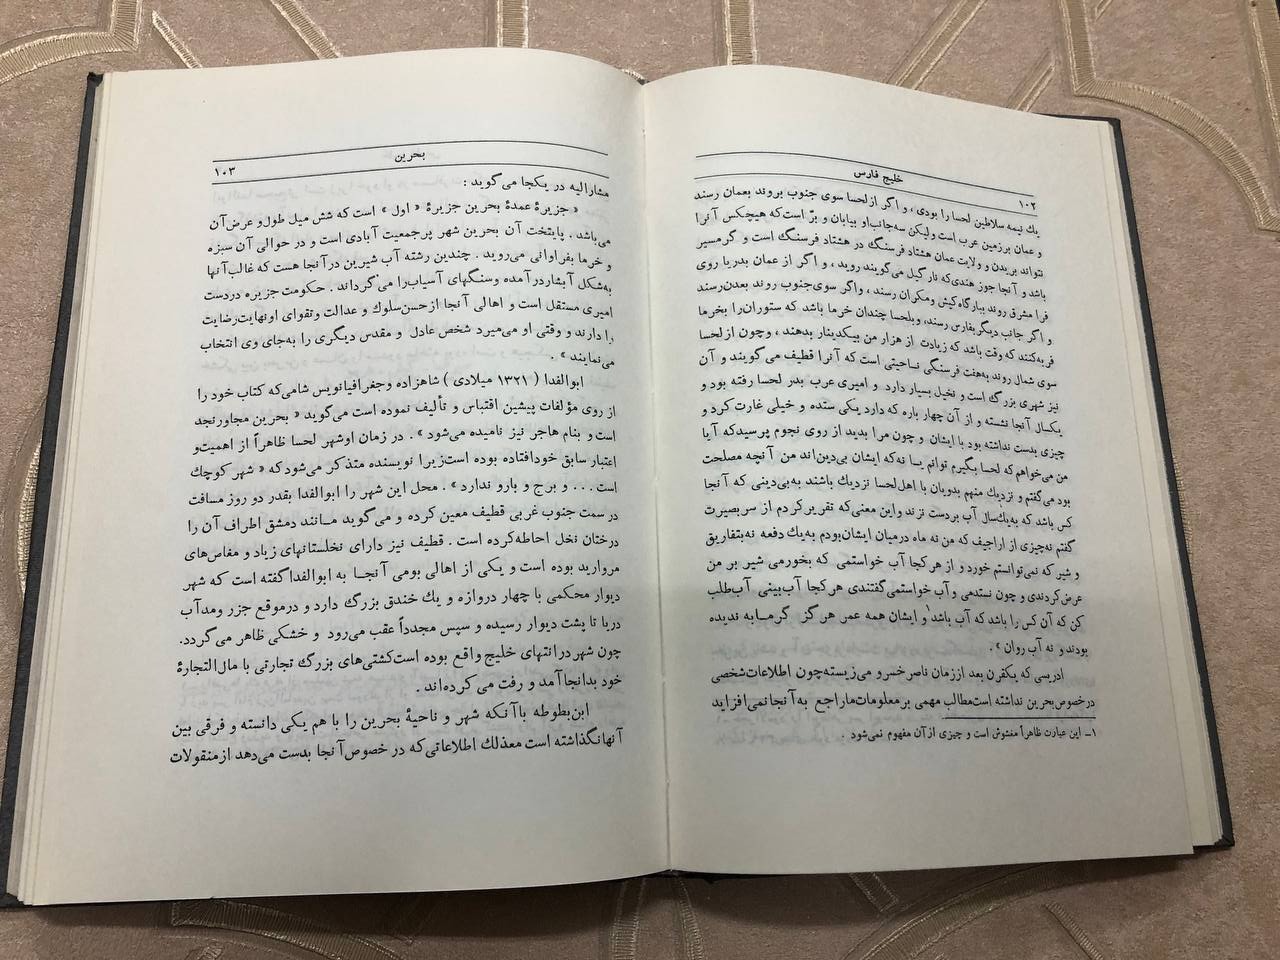 خلیج فارس
۱۰۲
یك نیمه سلاطین لحسا را بودی ، و اگر از لحسا سوی جنوب بروند بعمان رسند
و عمان بر زمین عرب است ولیکن سه جانب او بیابان و برّ است که هیچکس آنرا
نتواند بریدن و ولایت عمان هشتاد فرسنگ در هشتاد فرسنگ است و گرمسیر
باشد و آنجا جوز هندی که نارگیل میگویند روید ، و اگر از عمان بدریا روی
فرا مشرق روند ببارگاه کیش و مکران رسند ، و اگر سوی جنوب روند بعدن رسند
و اگر جانب دیگر بفارس رسند ، و بلحسا چندان خرما باشد که ستوران را بخرما
فربه کنند که وقت باشد که زیادت از هزار من بیکدینار بدهند ، و چون از لحسا
سوی شمال روند بهفت فرسنگی ناحیتی است که آنرا قطیف می گویند و آن
نیز شهری بزرگ است و نخیل بسیار دارد و امیری عرب بدر لحسا رفته بود و
یکسال آنجا نشسته و از آن چهار باره که دارد یکی ستده و خیلی غارت کرد و
چیزی بدست نداشته بود با ایشان و چون مرا بدید از روی نجوم پرسید که آیا
من می خواهم که لحسا بگیرم توانم یا نه که ایشان بی دین اند من آنچه مصلحت
بود می گفتم و نزدیك منهم بدویان با اهل لحسا نزدیك باشند به بی دینی که آنجا
کس باشد که به یك سال آب بردست نزند و این معنی که تقریر کردم از سر بصیرت
گفتم نه چیزی از اراجیف که من نه ماه درمیان ایشان بودم به یك دفعه نه بتفاریق
و شیر که نمی توانستم خورد و از هر کجا آب خواستمی که بخورمی شیر بر من
عرض کردندی و چون نستدمی و آب خواستمی گفتندی هر کجا آب بینی آب طلب
کن که آن کس را باشد که آب باشد۱ و ایشان همه عمر هر گز گرمابه ندیده
بودند و نه آب روان » .
ادریسی که یکقرن بعد از زمان ناصر خسرو می زیسته چون اطلاعات شخصی
در خصوص بحرین نداشته است مطالب مهمی بر معلومات ما راجع به آنجا نمی افزاید
۱- این عبارت ظاهراً مغشوش است و چیزی از آن مفهوم نمی شود .
بحرین
۱۰۳
مشارالیه در یکجا می گوید :
« جزیرهٔ عمدهٔ بحرین جزیرهٔ « اول » است که شش میل طول و عرض آن
می باشد . پایتخت آن بحرین شهر پرجمعیت آبادی است و در حوالی آن سبزه
و خرما بفراوانی می روید . چندین رشته آب شیرین در آنجا هست که غالب آنها
به شکل آبشار در آمده و سنگهای آسیاب را می گرداند . حکومت جزیره در دست
امیری مستقل است و اهالی آنجا از حسن سلوك و عدالت و تقوای او نهایت رضایت
را دارند و وقتی او می میرد شخص عادل و مقدس دیگری را به جای وی انتخاب
می نمایند » .
ابوالفدا ( ۱۳۲۱ میلادی ) شاهزاده و جغرافیانویس شامی که کتاب خود را
از روی مؤلفات پیشین اقتباس و تألیف نموده است می گوید « بحرین مجاور نجد
است و بنام هاجر نیز نامیده می شود » . در زمان او شهر لحسا ظاهراً از اهمیت و
اعتبار سابق خود افتاده بوده است زیرا نویسنده متذکر می شود که « شهر کوچك
است . . . و برج و بارو ندارد » . محل این شهر را ابوالفدا بقدر دو روز مسافت
در سمت جنوب غربی قطیف معین کرده و می گوید مانند دمشق اطراف آن را
درختان نخل احاطه کرده است . قطیف نیز دارای نخلستانهای زیاد و مغاص های
مروارید بوده است و یکی از اهالی بومی آنجا به ابوالفدا گفته است که شهر
دیوار محکمی با چهار دروازه و یك خندق بزرگ دارد و در موقع جزر و مد آب
دریا تا پشت دیوار رسیده و سپس مجدداً عقب می رود و خشکی ظاهر می گردد.
چون شهر در انتهای خلیج واقع بوده است کشتی های بزرگ تجارتی با مال التجارهٔ
خود بدانجا آمد و رفت می کرده اند .
ابن بطوطه با آنکه شهر و ناحیهٔ بحرین را با هم یکی دانسته و فرقی بین
آنها نگذاشته است معذلك اطلاعاتی که در خصوص آنجا بدست می دهد از منقولات